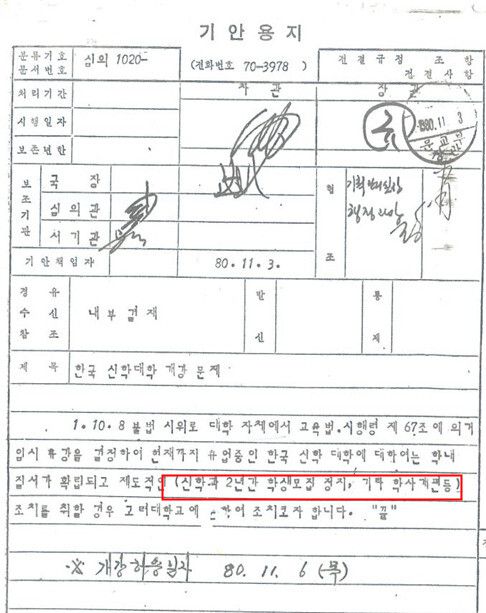 기안용지
분류기호 문서번호 심의 1020- (전화번호 70-3978) 전결규정 조 항 전결사항
처리기간 차관 장관
시행일자
보존연한
1980.11. 3
문교부 장관
보조기관 국장 협조 기획관리실장
심의관 행정관실
서기관
기안책임자 80.11.3.
경유 수신 참조 내부결재 발신 통제
제목 한국 신학대학 개강 문제
1.10.8 불법 시위로 대학 자체에서 교육법.시행령 제 67조에 의거
임시 휴강을 결정하여 현재까지 휴업중인 한국 신학 대학에 대하여는 학내
질서가 확립되고 제도적인 (신학과 2년간 학생모집 정지, 기타 학사개편등)
조치를 취할 경우 그러대학교에 하여 조치코자 합니다. "끝"
※ 개강허용일자 80. 11. 6 (목)